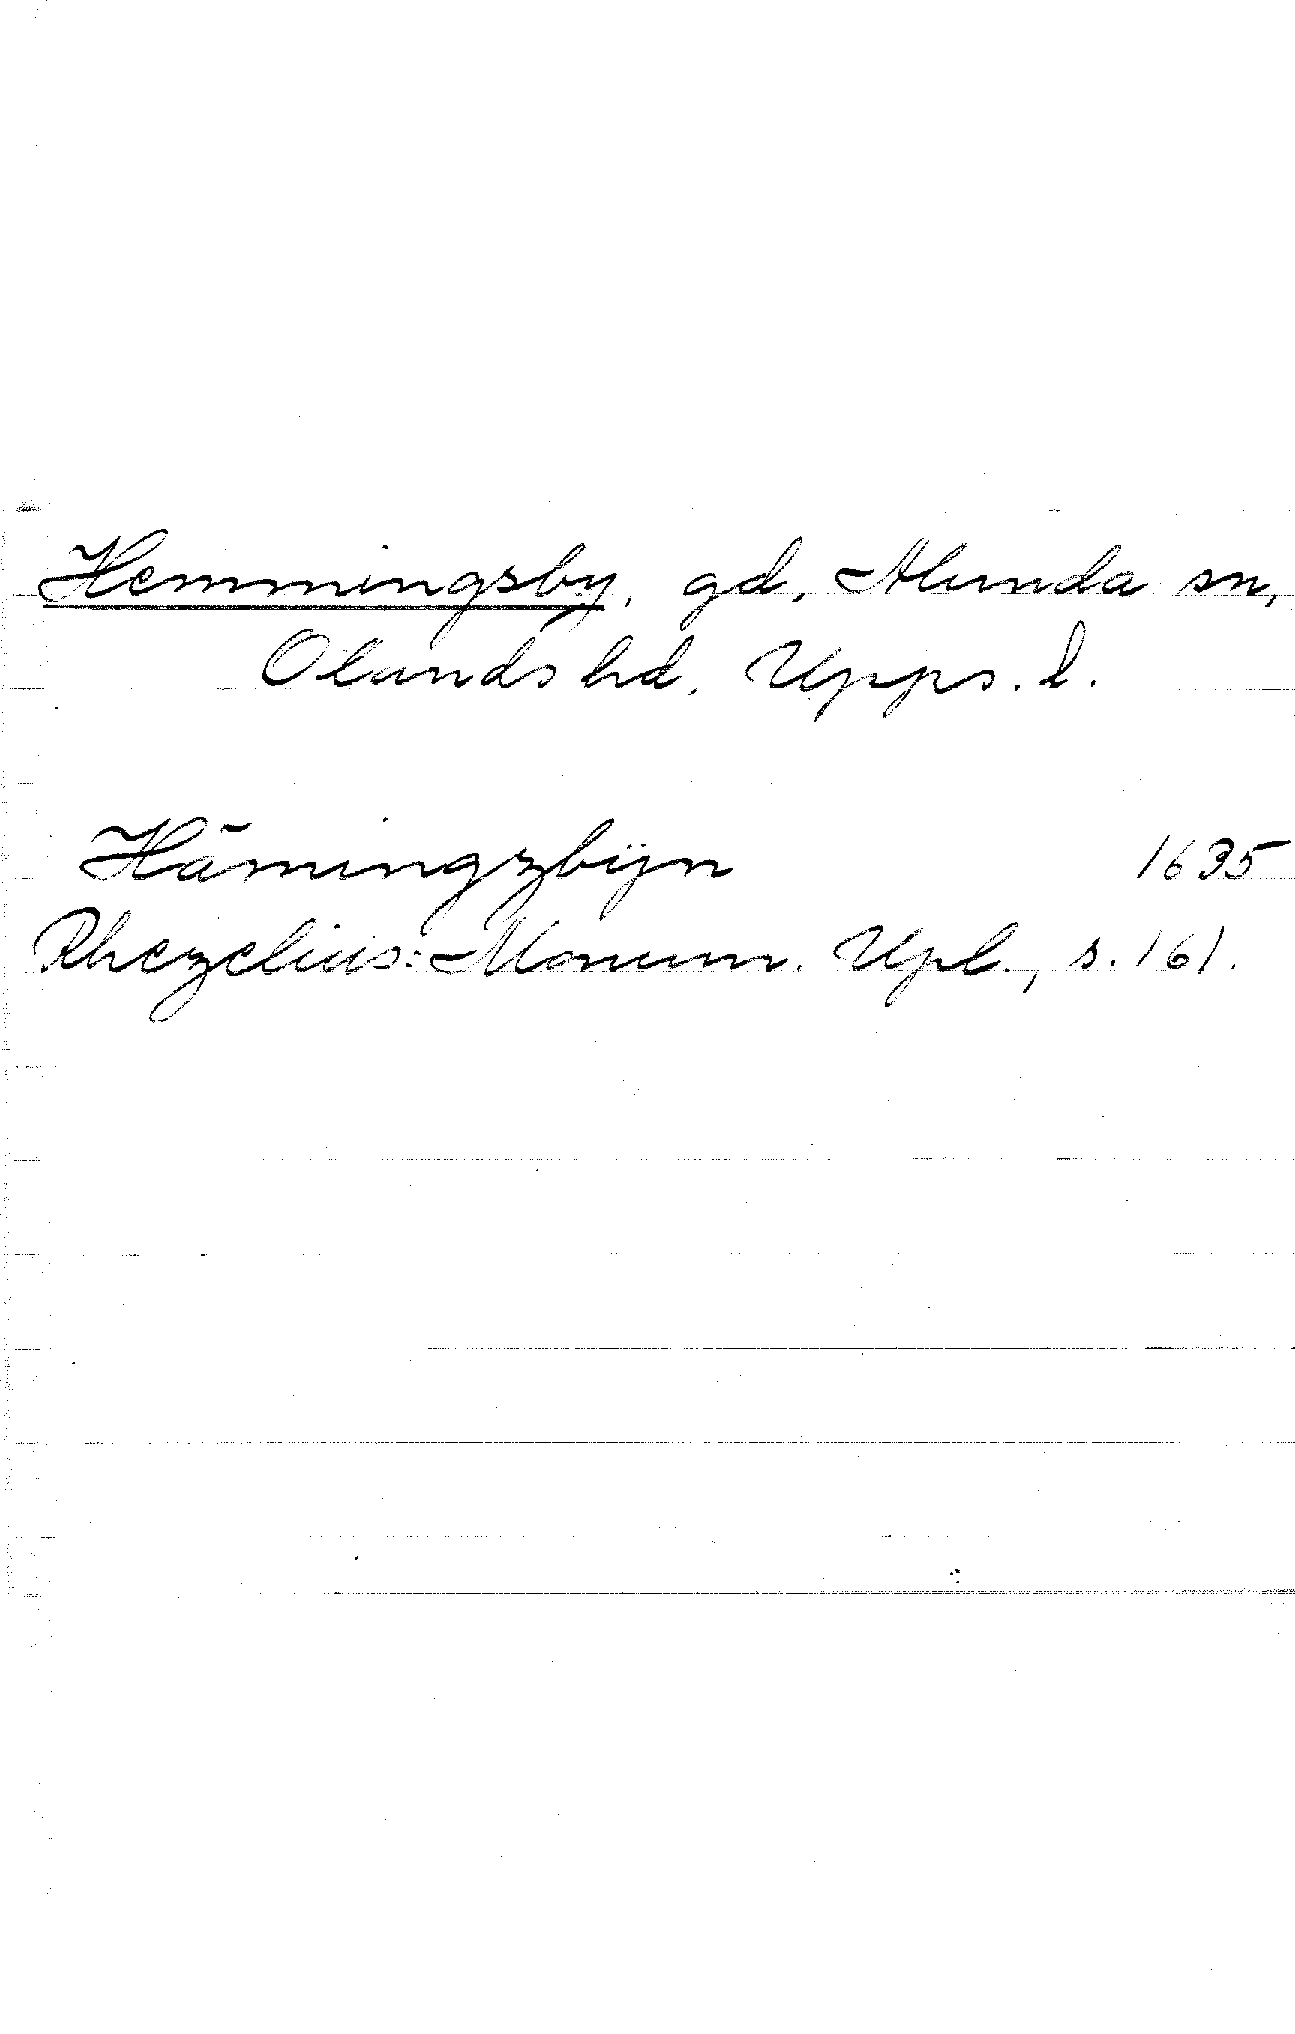 Hemmingsby, gd, Alunda sn,
Olands hd, Upps. l.
Hämingzbÿn 1635
Rhezelius: Monum. Upl., s. 161.